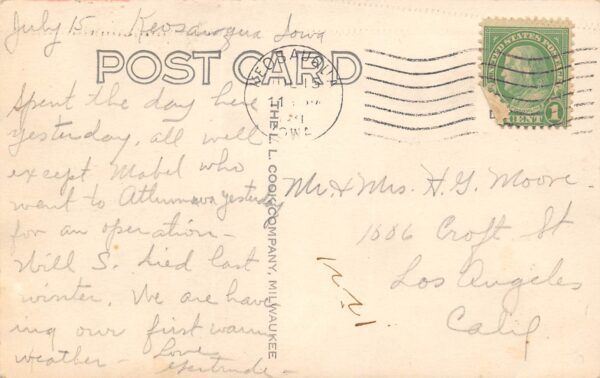 July 15 Keosauqua Iowa
POST CARD
KEOSAUQUA
15
IOWA
UNITED STATES POSTAGE
1 CENT 1
Spent the day here
yesterday, all well
except Mabel who
went to Attumwa yesterday
for an operation -
Will S. died last
winter. We are hav
ing our first warm
weather - Love
Gertrude -
THE L. L. COOK COMPANY, MILWAUKEE
Mr. & Mrs. H. G. Moore -
1556 Croft St
Los Angeles
Calif.